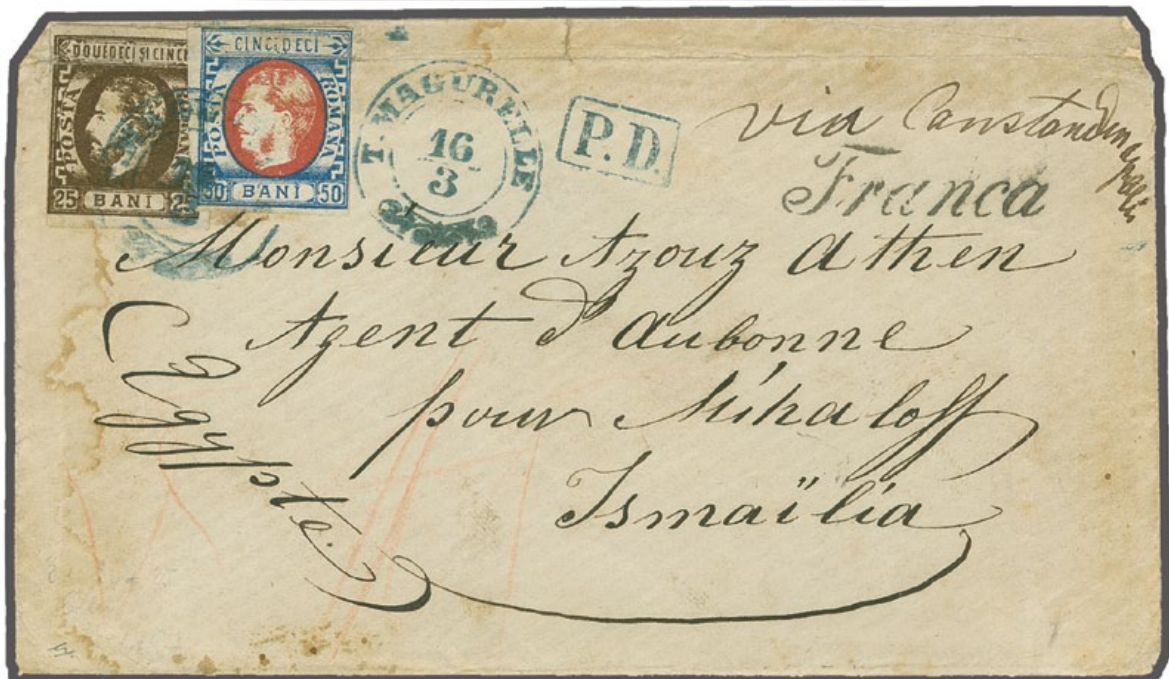 DOUEDECI ȘI CINCI
POSTA
ROMANA
25 BANI 25
CINCIDECI
POSTA
ROMANA
50 BANI 50
T. MAGURELLE
16
3
P.D.
via Constandinople
Franca
Monsieur Azouz Athen
Agent d'Aubonne
pour Mihaloff
Ismaïlia
Egypte.